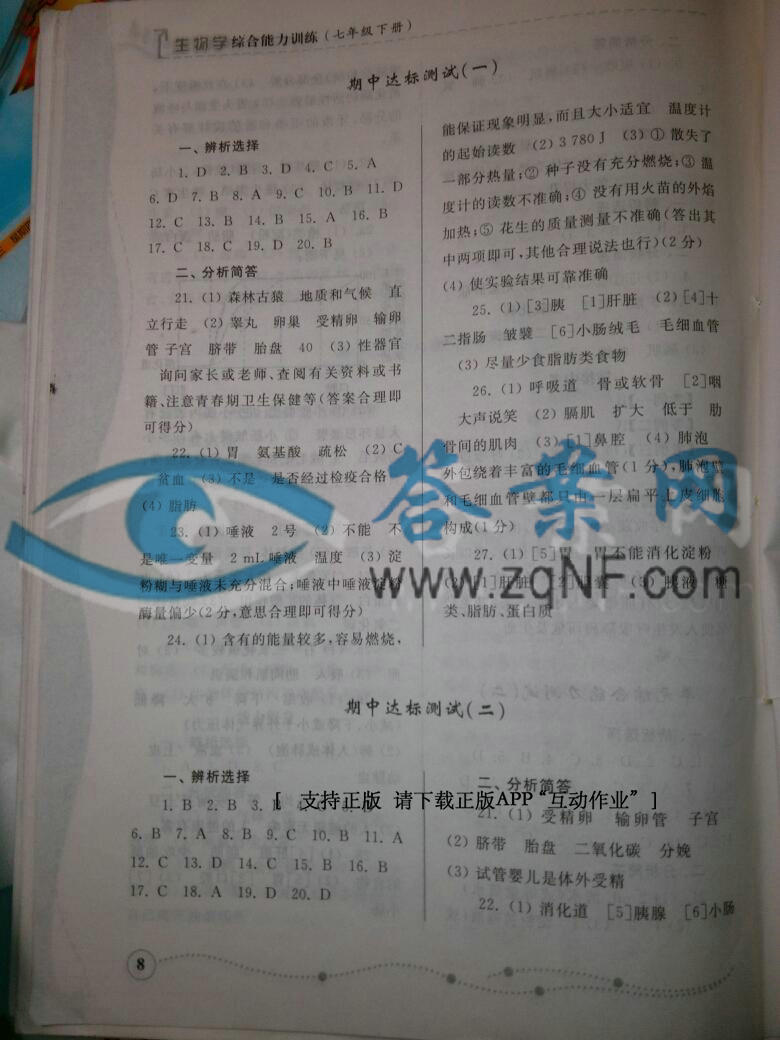 生物学综合能力训练(七年级下册)
期中达标测试(一)
一、辨析选择
1. D 2. B 3. D 4. C 5. A
6. D 7. B 8. A 9. C 10. B 11. D
12. C 13. B 14. B 15. A 16. B
17. C 18. C 19. D 20. B
二、分析简答
21. (1) 森林古猿 地质和气候 直
立行走 (2) 睾丸 卵巢 受精卵 输卵
管 子宫 脐带 胎盘 40 (3) 性器官
询问家长或老师、查阅有关资料或书
籍、注意青春期卫生保健等(答案合理即
可得分)
22. (1) 胃 氨基酸 疏松 (2) C
贫血 (3) 不是 是否经过检疫合格
(4) 脂肪
23. (1) 唾液 2号 (2) 不能 不
是唯一变量 2 mL 唾液 温度 (3) 淀
粉糊与唾液未充分混合;唾液中唾液淀粉
酶量偏少(2分,意思合理即可得分)
24. (1) 含有的能量较多,容易燃烧,
能保证现象明显,而且大小适宜 温度计
的起始读数 (2) 3 780 J (3) ① 散失了
一部分热量;② 种子没有充分燃烧;③ 温
度计的读数不准确;④ 没有用火苗的外焰
加热;⑤ 花生的质量测量不准确(答出其
中两项即可,其他合理说法也行)(2分)
(4) 使实验结果可靠准确
25. (1) [3]胰 [1]肝脏 (2) [4]十
二指肠 皱襞 [6]小肠绒毛 毛细血管
(3) 尽量少食脂肪类食物
26. (1) 呼吸道 骨或软骨 [2]咽
大声说笑 (2) 膈肌 扩大 低于 肋
骨间的肌肉 (3) [1]鼻腔 (4) 肺泡
外包绕着丰富的毛细血管(1分),肺泡壁
和毛细血管壁都只由一层扁平上皮细胞
构成(1分)
27. (1) [5]胃 胃不能消化淀粉
(2) [1]肝脏 [2]胆囊 (3) 胰液 糖
类、脂肪、蛋白质
答案网
www.zqNF.com
期中达标测试(二)
一、辨析选择
1. B 2. B 3.
[ 支持正版 请下载正版APP“互动作业” ]
6. B 7. A 8. B 9. C 10. B 11. A
12. C 13. D 14. C 15. B 16. B
17. C 18. A 19. D 20. D
二、分析简答
21. (1) 受精卵 输卵管 子宫
(2) 脐带 胎盘 二氧化碳 分娩
(3) 试管婴儿是体外受精
22. (1) 消化道 [5]胰腺 [6]小肠
8